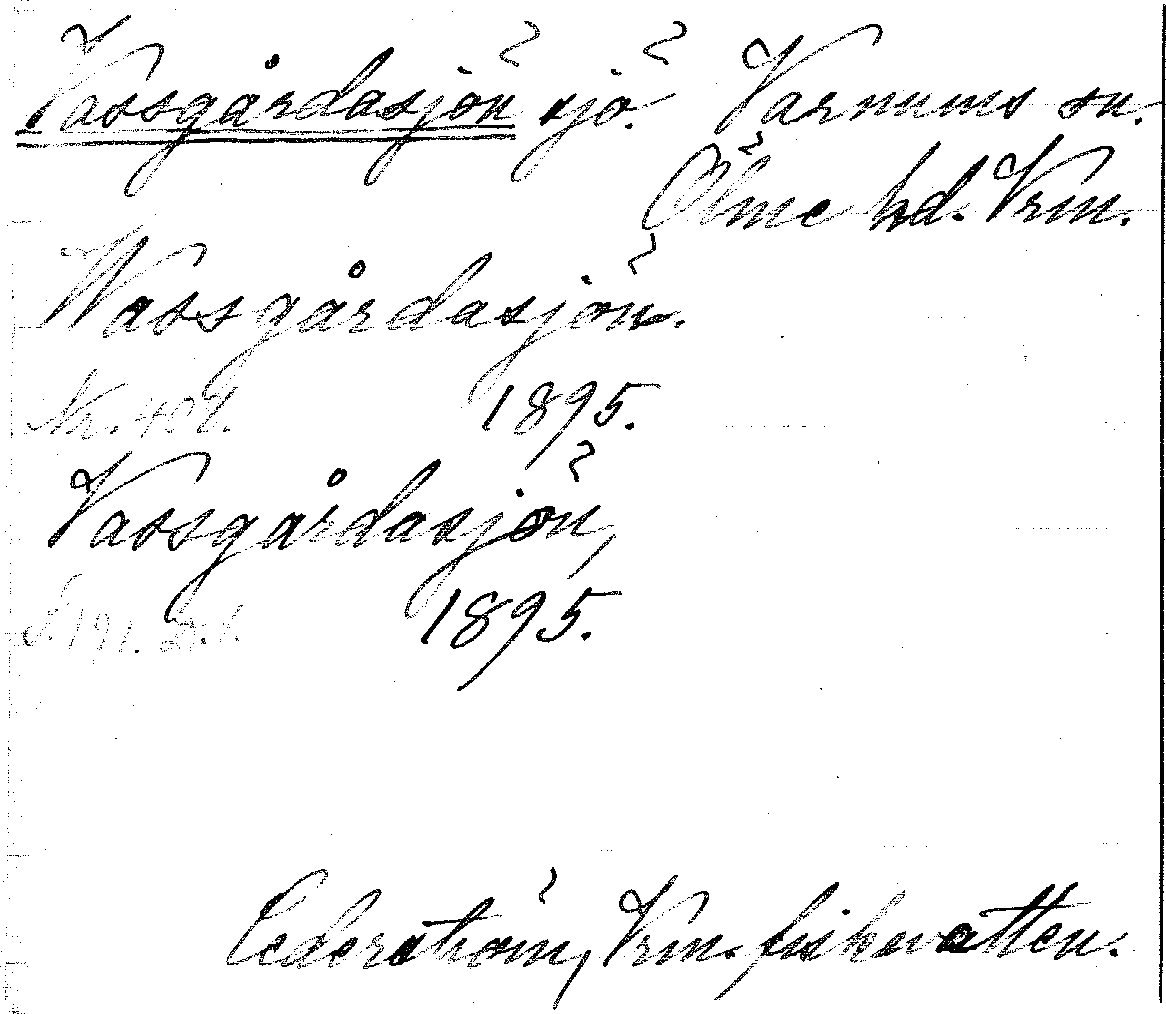 Vassgårdasjön sjö. Varnums sn.
Ölme hd. Vrm.
Wassgårdasjön.
Nr. 404. 1895.
Vassgårdasjön,
S. 191. 1895.
Cederström, Vrm. fiskevatten.